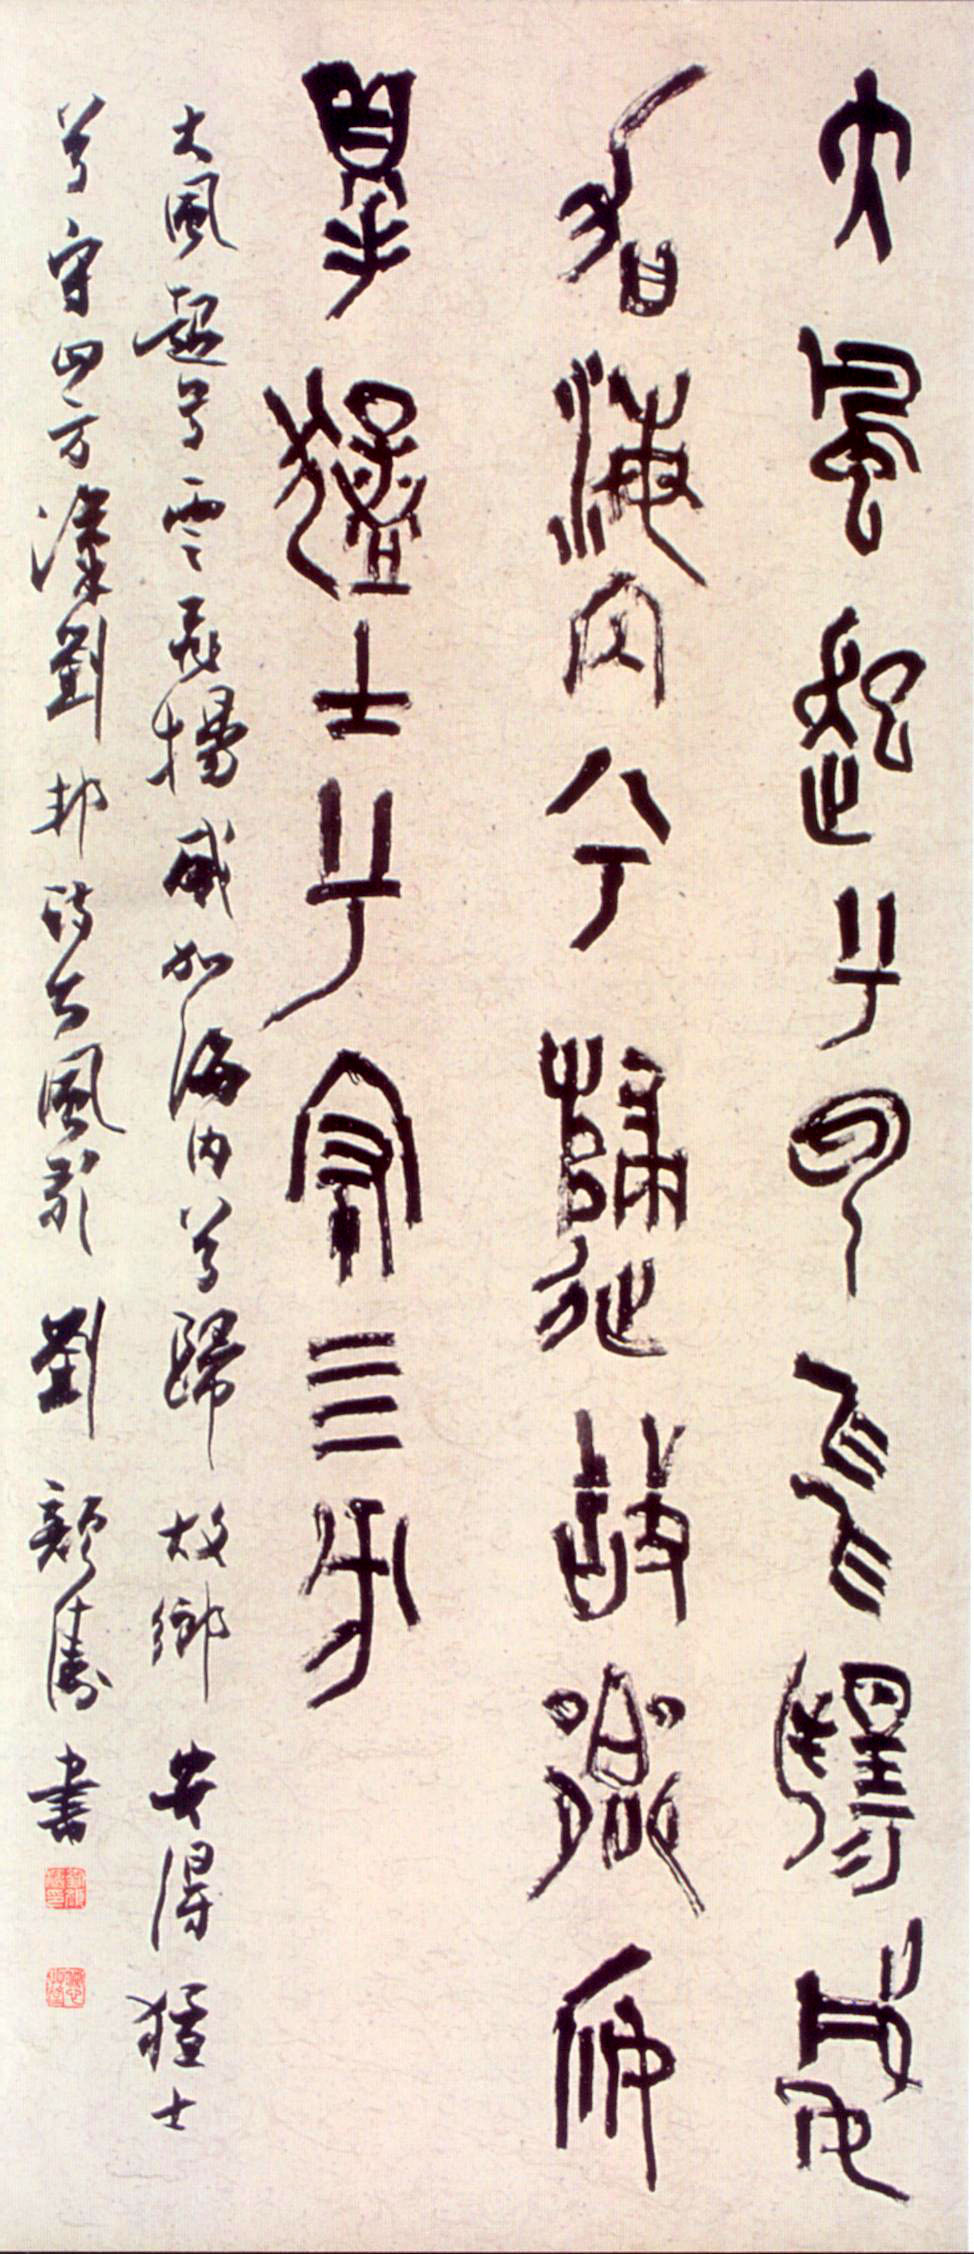 大風起兮雲飛揚威
加海內兮歸故鄉安
得猛士兮守四方
大風起兮雲飛揚威加海內兮歸故鄉安得猛士
兮守四方漢劉邦詩大風歌劉顏濤書